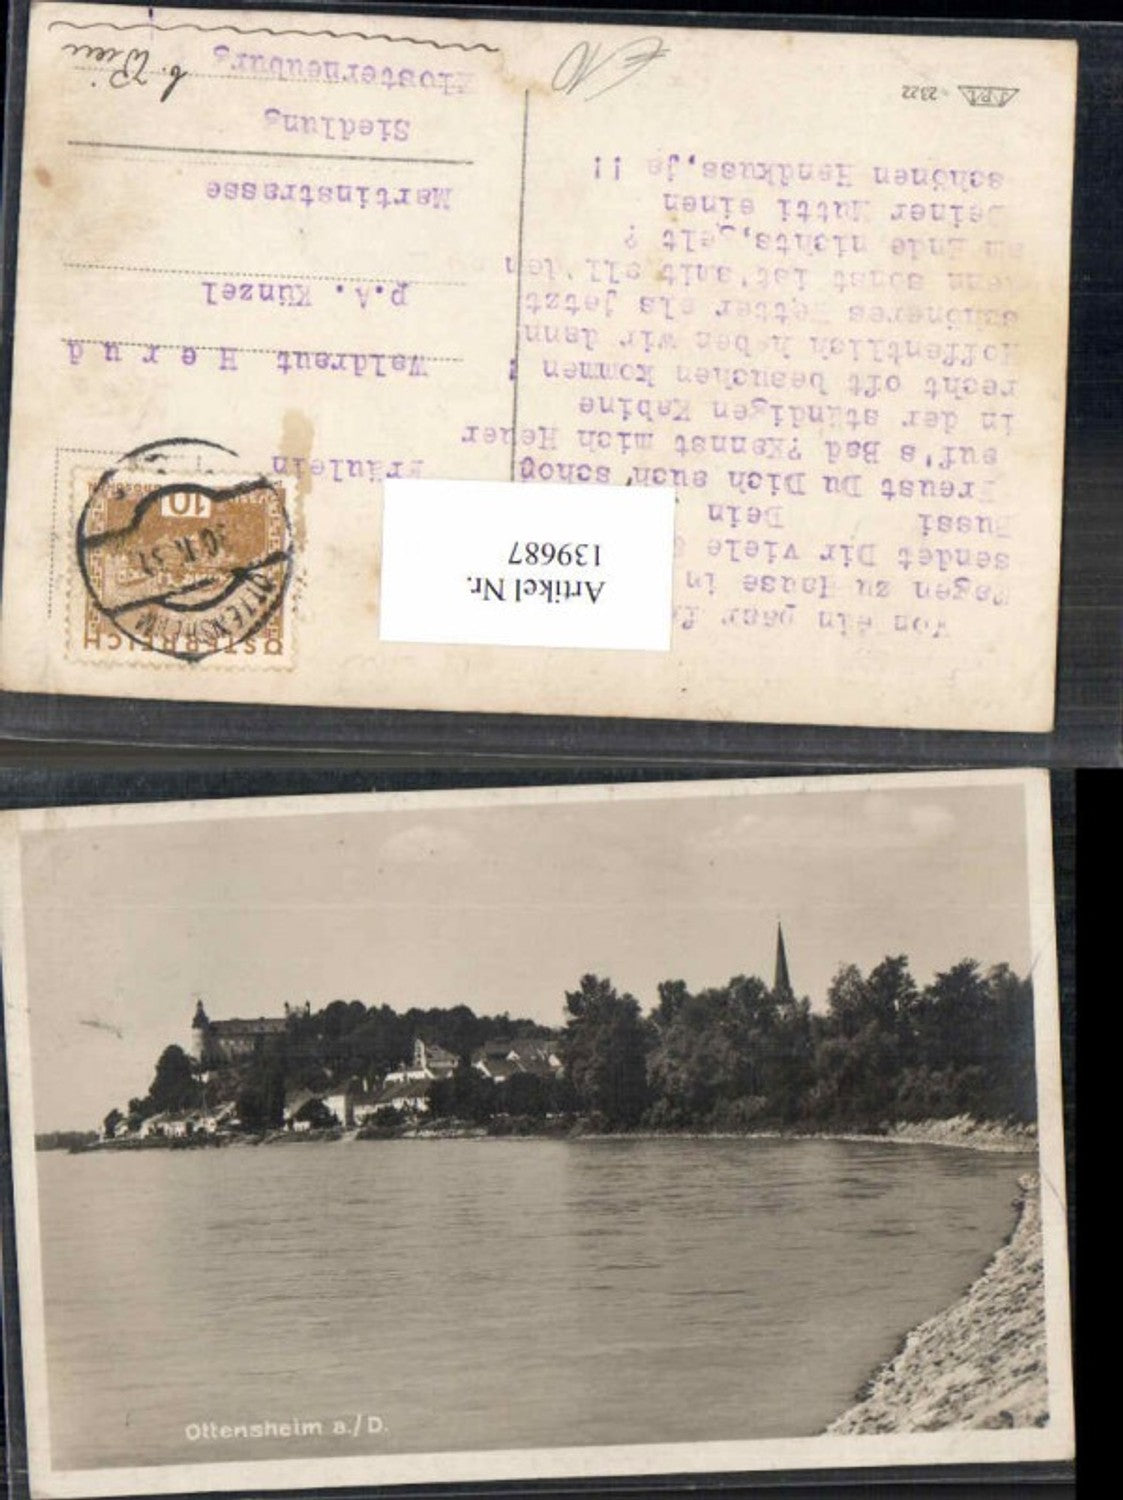 Von ein paar
Tagen zu Hause in
sendet Dir viele
Bussi Dein
Freust Du Dich auch schon
auf's Bad ?Kannst mich Heuer
in der ständigen Kabine
recht oft besuchen kommen !
Hoffentlich haben wir dann
schöneres Wetter als jetzt
denn sonst ist's mit all'dem
am Ende nichts,gelt ?
Deiner Mutti einen
schönen Handkuss,ja !!
Fräulein
Waldraut Herud
p.A. Künzel
Martinstrasse
Siedlung
Klosterneuburg
b. Wien
ÖSTERREICH
10
OTTENSHEIM
Artikel Nr.
139687
2322
€10
Ottensheim a./D.